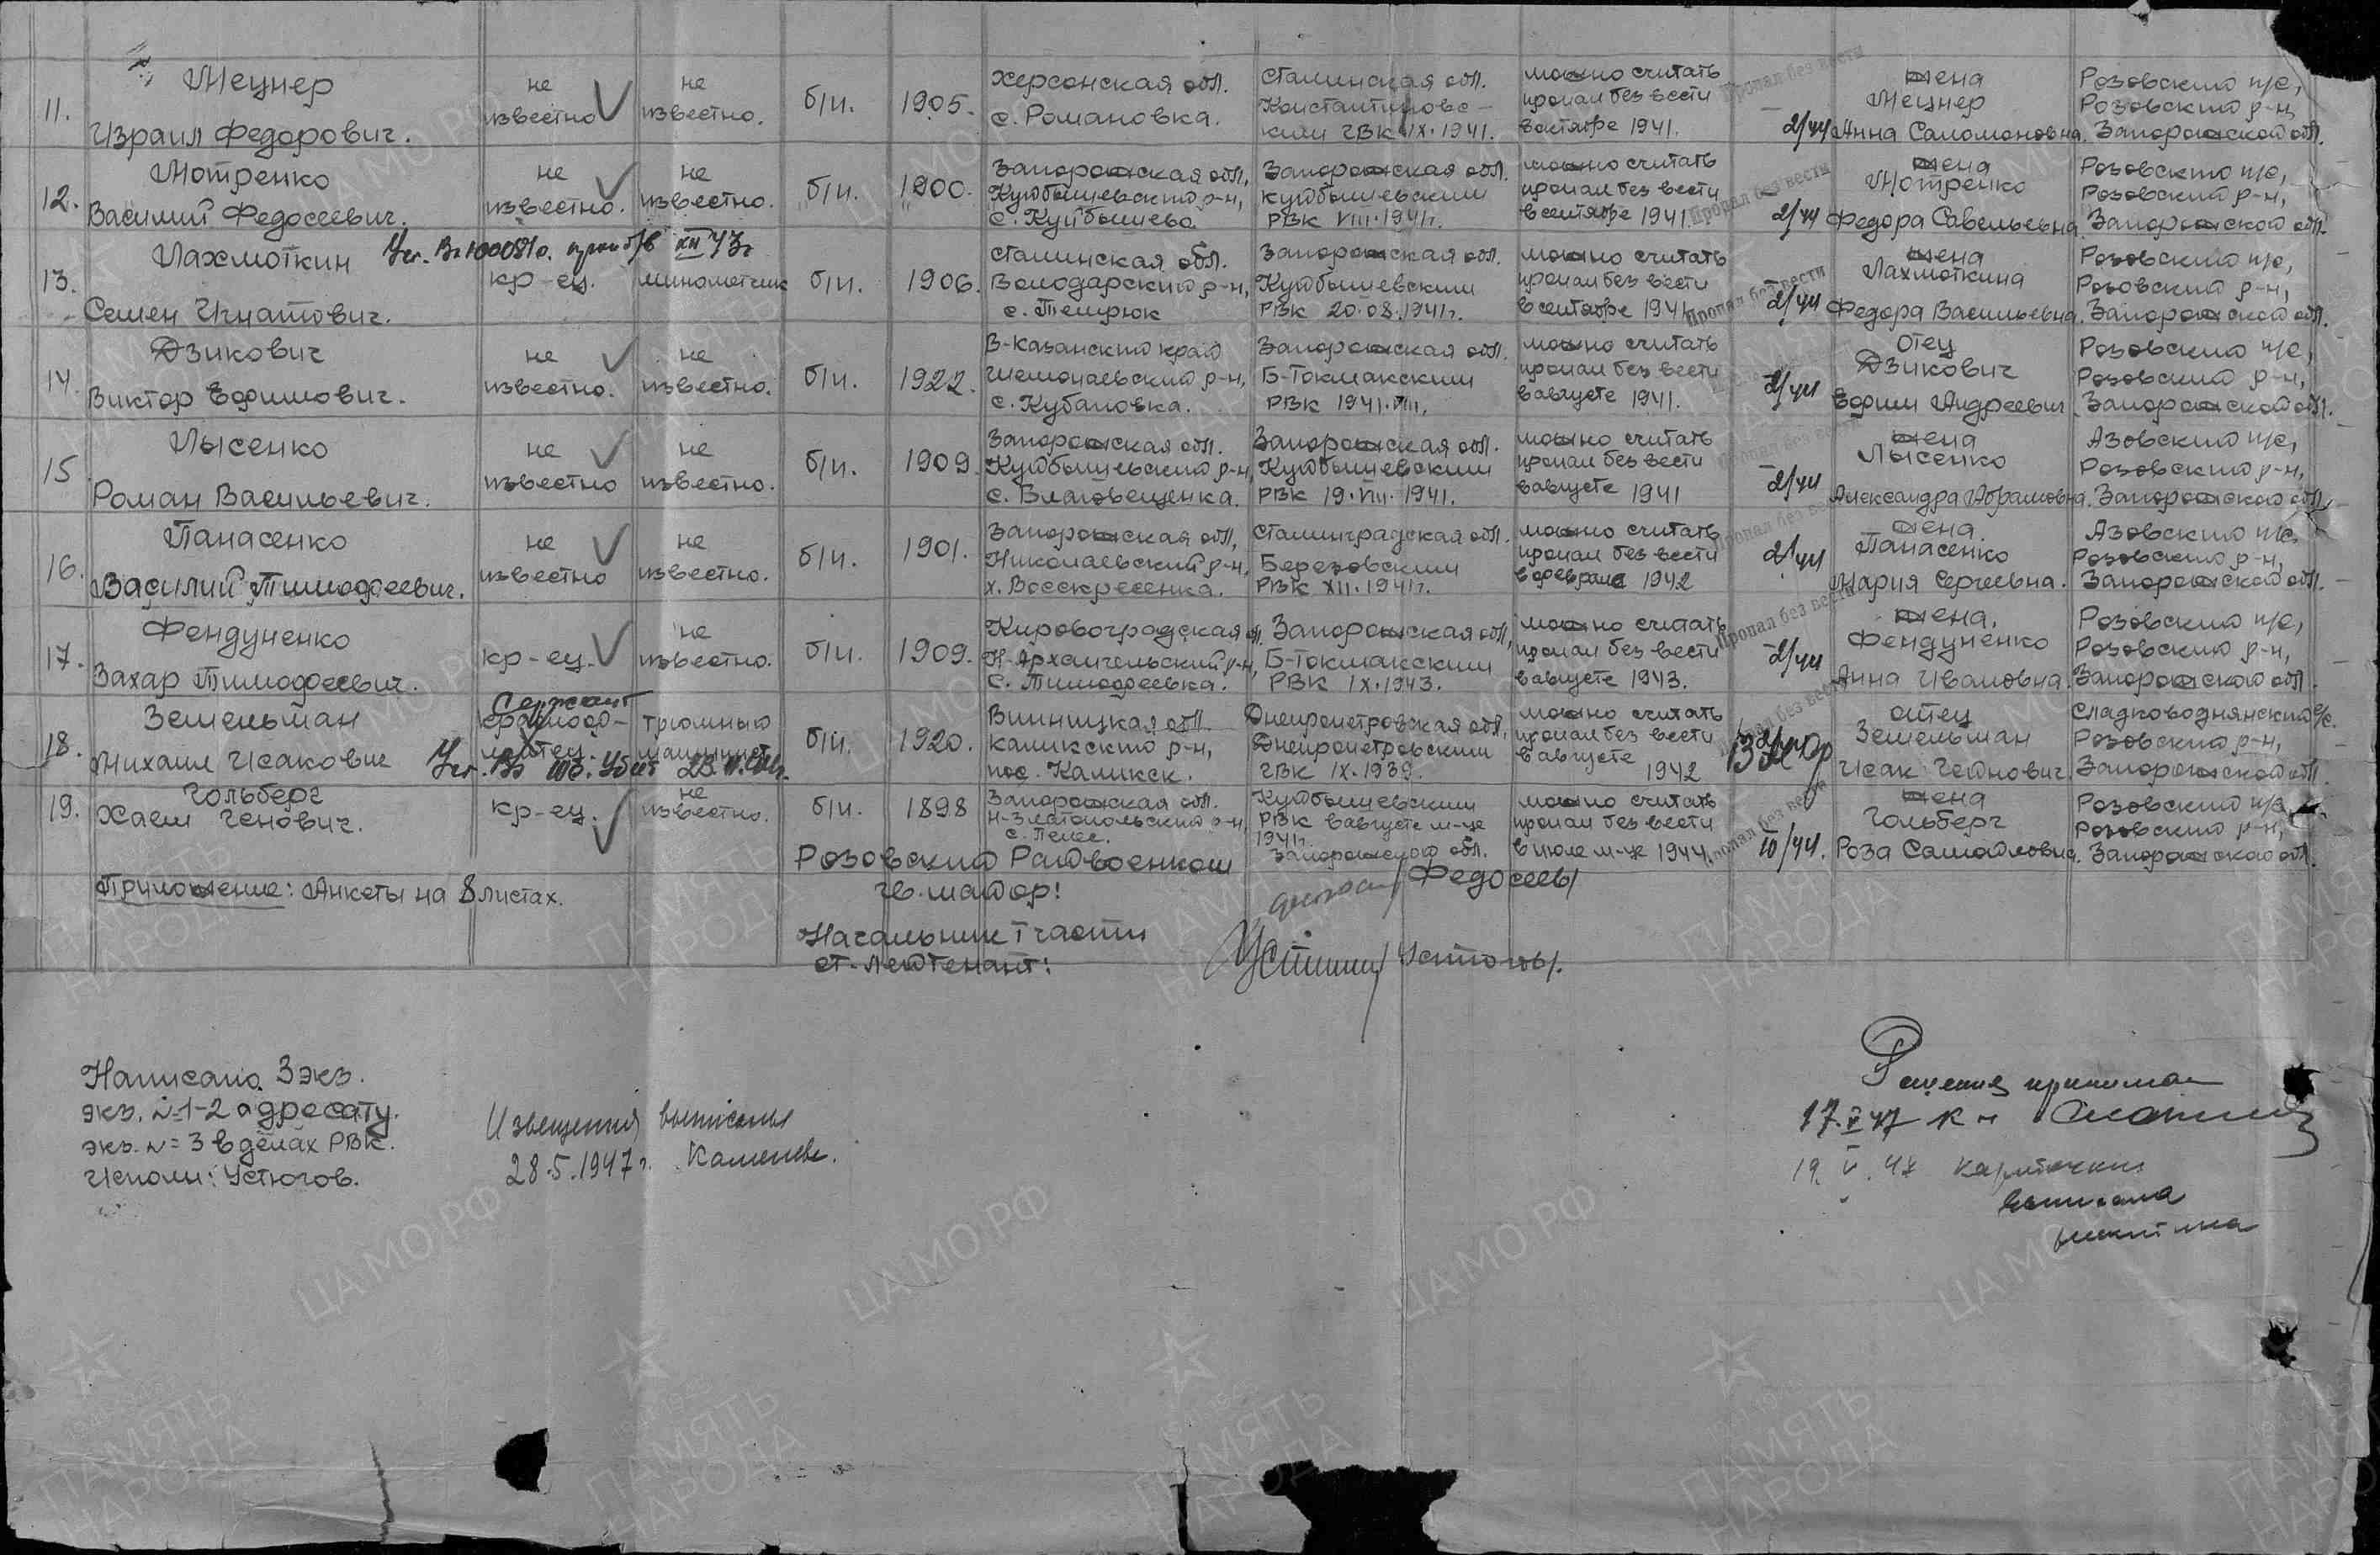 11.
Мецнер
Израил Федорович.
не
известно
не
известно.
б/п.
1905.
Херсонская обл.
с. Романовка.
Сталинская обл.
Константиновс-
ким ГВК IX.1941.
можно считать
пропал без вести
в октябре 1941.
Пропал без вести
жена
Мецнер
Анна Саломоновна.
Розовский п/с,
Розовский р-н,
Запорожской обл.
12.
Мотренко
Василий Федосеевич.
не
известно.
не
известно.
б/п.
1900.
Запорожская обл,
Куйбышевский р-н,
с. Куйбышево
Запорожская обл.
Куйбышевским
РВК VIII.1941г.
можно считать
пропал без вести
в сентябре 1941.
Пропал без вести
жена
Мотренко
Федора Савельевна.
Розовский п/с,
Розовский р-н,
Запорожской обл.
13.
Лахмоткин
Семен Игнатович.
кр-ец.
минометчик
б/п.
1906.
Сталинская обл.
Володарский р-н,
с. Темрюк
Запорожская обл.
Куйбышевским
РВК 20.08.1941г.
можно считать
пропал без вести
в сентябре 1941.
Пропал без вести
жена
Лахмоткина
Федора Васильевна.
Розовский п/с,
Розовский р-н,
Запорожской обл.
14.
Дзикович
Виктор Ефимович.
не
известно.
не
известно.
б/п.
1922.
В-Казанский край
р-н,
с. Кубановка.
Запорожская обл.
Б-Токмакским
РВК 1941.VIII.
можно считать
пропал без вести
в августе 1941.
отец
Дзикович
Ефим Андреевич.
Розовский п/с,
Розовский р-н,
Запорожской обл.
15.
Лысенко
Роман Васильевич.
не
известно
не
известно.
б/п.
1909.
Запорожская обл.
Куйбышевский р-н,
с. Благовещенка.
Запорожская обл.
Куйбышевским
РВК 19.VIII.1941.
можно считать
пропал без вести
в августе 1941
жена
Лысенко
Александра Абрамовна.
Азовский п/с,
Розовский р-н,
Запорожской обл.
16.
Панасенко
Василий Тимофеевич.
не
известно
не
известно.
б/п.
1901.
Запорожская обл,
Николаевский р-н,
х. Восскресенка.
Сталинградская обл.
Березовским
РВК XII.1941г.
можно считать
пропал без вести
в феврале 1942
Пропал без вести
жена.
Панасенко
Мария Сергеевна.
Азовский п/с.
Розовский р-н,
Запорожской обл.
17.
Фендуненко
Захар Тимофеевич.
кр-ец.
не
известно.
б/п.
1909.
Кировоградская обл.
Н-Архангельский р-н,
с. Тимофеевка.
Запорожская обл,
Б-Токмакским
РВК IX.1943.
можно считать
пропал без вести
в августе 1943.
Пропал без вести
жена.
Фендуненко
Анна Ивановна.
Розовский п/с,
Розовский р-н,
Запорожской обл.
18.
Земельман
Михаил Исакович
Сержант
трюмный
машинист
б/п.
1920.
Винницкая обл.
р-н,
пос. Калинск.
Днепропетровская обл,
Днепропетровским
ГВК IX.1939.
можно считать
пропал без вести
в августе
1942
отец
Земельман
Исак
Сладководнянский с/с.
Розовский р-н,
Запорожской обл.
19.
Гольберг
Хаем Генович.
кр-ец.
не
известно.
б/п.
1898
Запорожская обл.
Н-Златопольский р-н,
Куйбышевским
РВК в августе м-це
1941г.
Запорожской обл.
можно считать
пропал без вести
в июле м-це 1944.
Пропал без вести
жена
Гольберг
Роза Самойловна.
Розовский п/с
Розовский р-н,
Запорожской обл.
Приложение: Анкеты на 8 листах.
Розовский Райвоенком
гв. майор:
/Федосеев/
Начальник I части
ст. лейтенант:
/Устюгов/.
Написано 3 экз.
экз. №1-2 адресату.
экз. №=3 в делах РВК.
Исполн: Устюгов.
Извещения выписаны
28.5.1947г.
Решения принимал
17.V 47 к-н
19.V.47 карточки
выписала
Никитина
ЦАМО.РФ
ПАМЯТЬ
НАРОДА